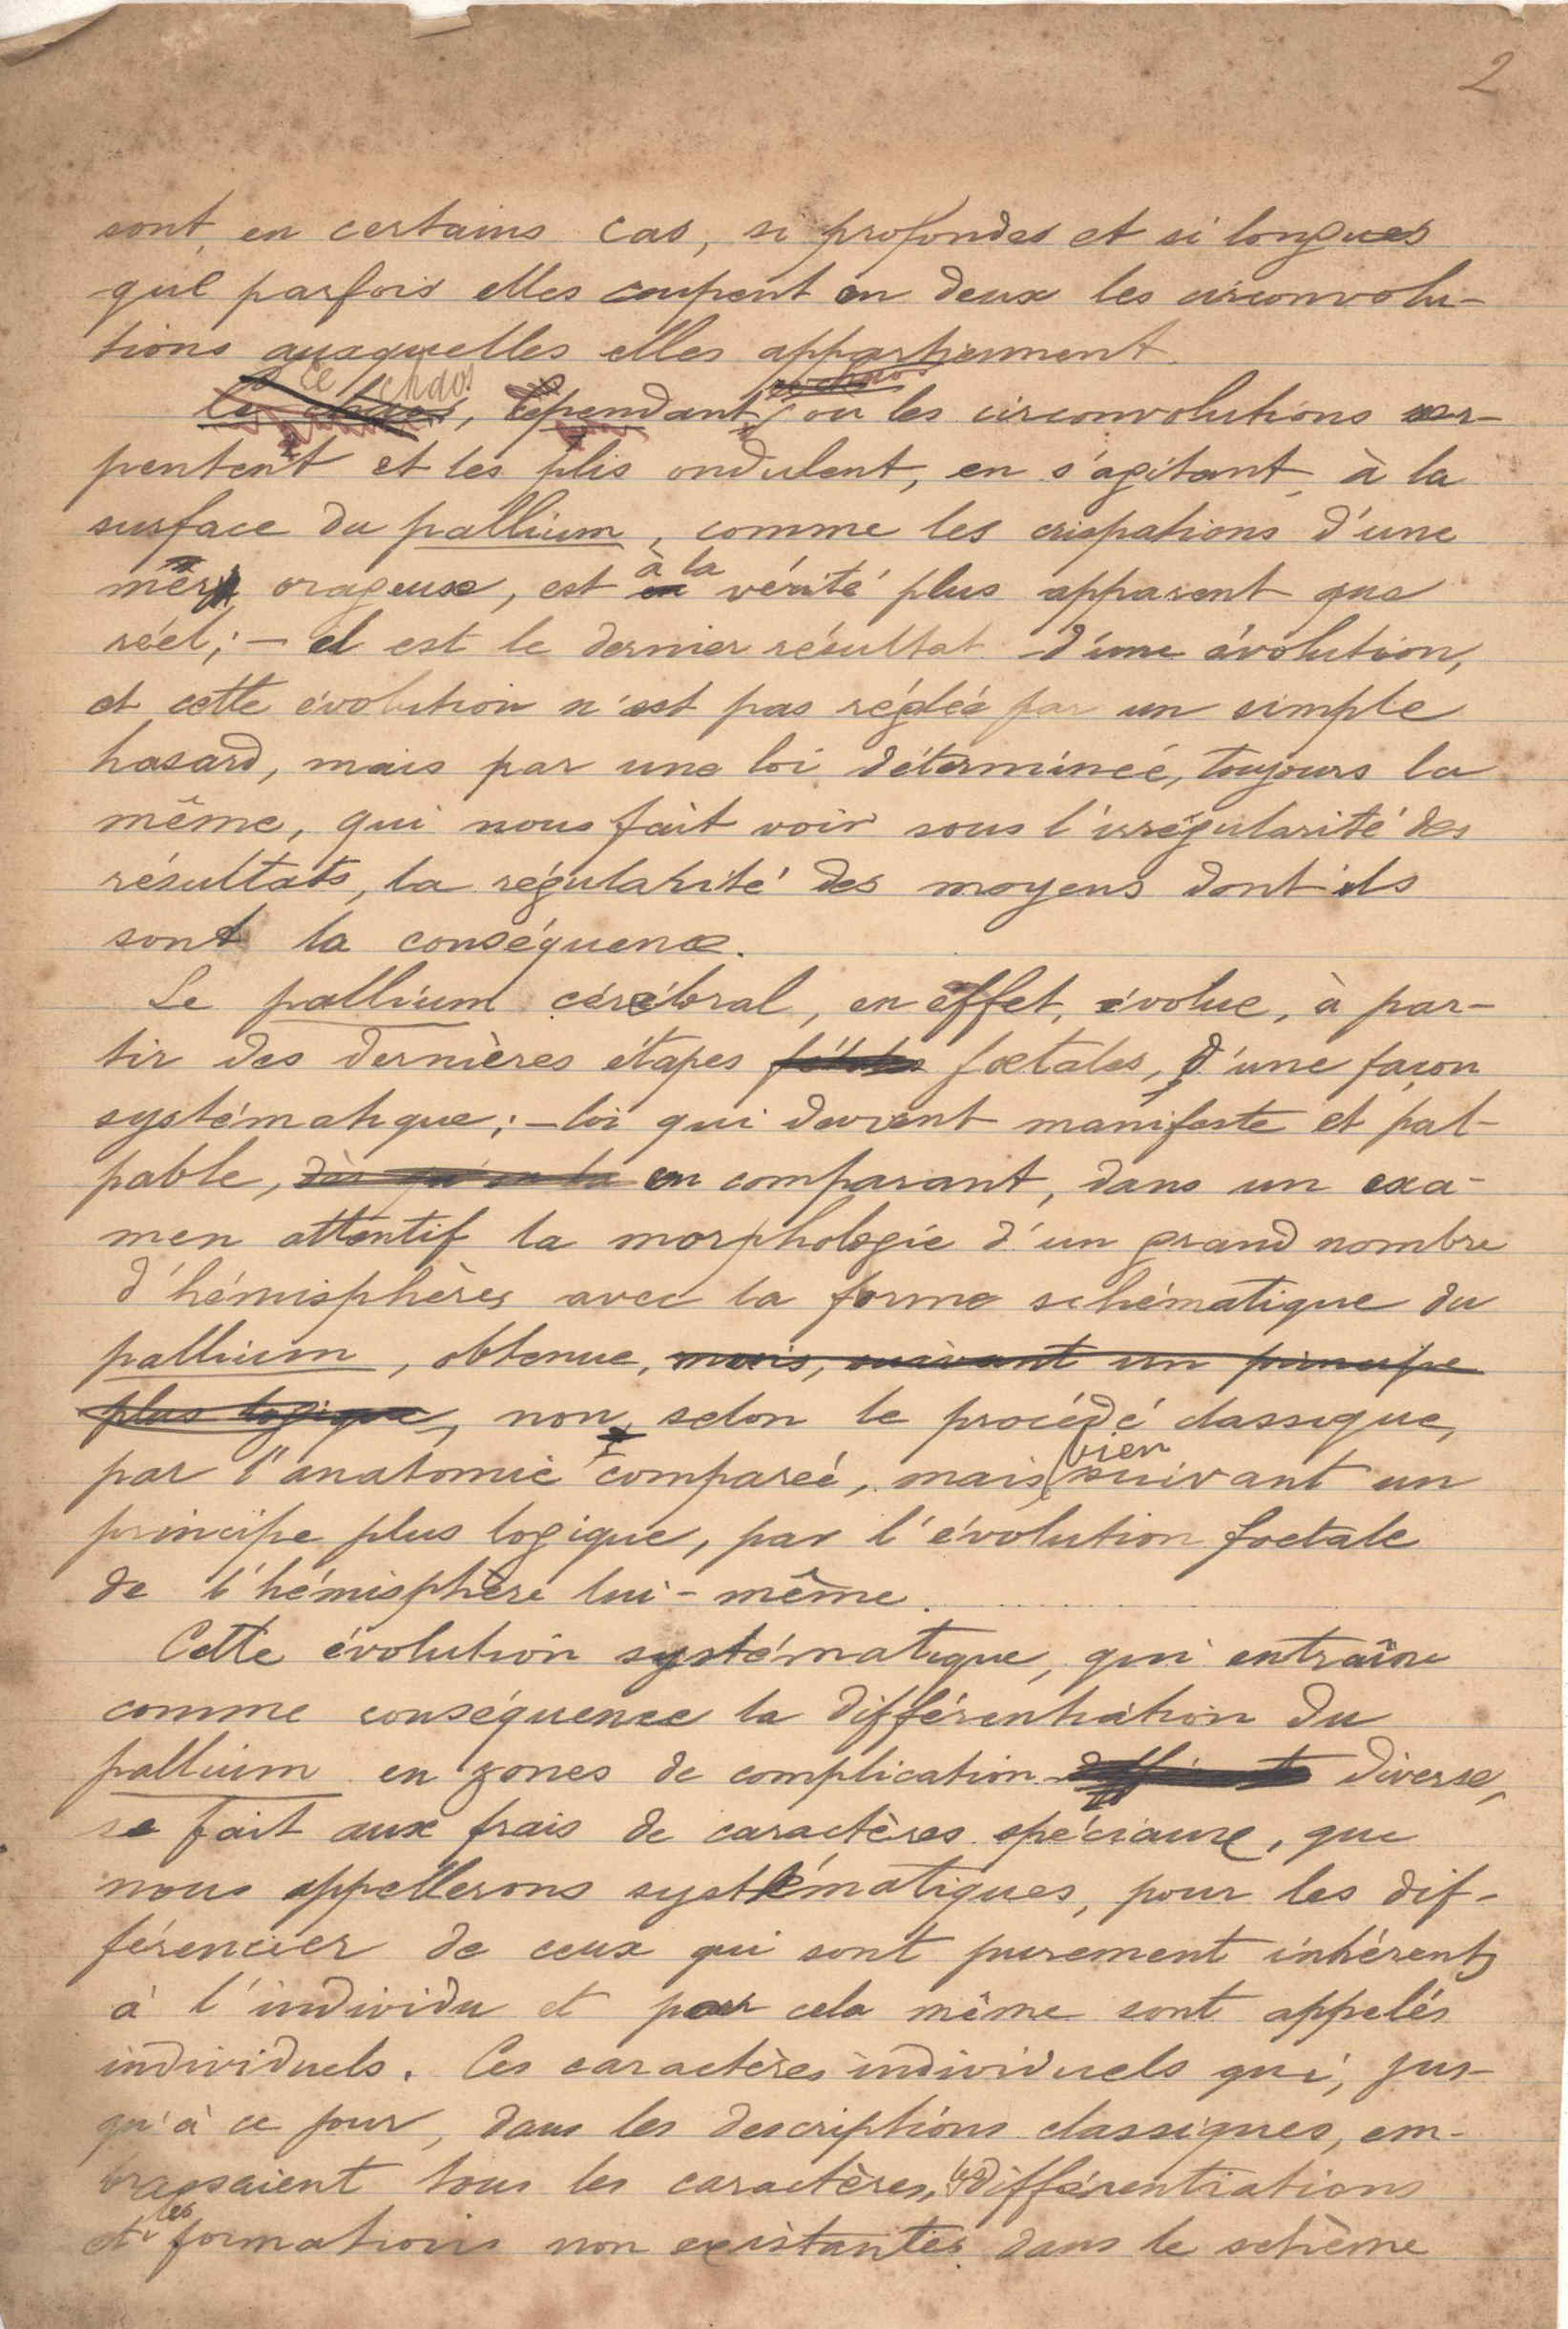 2
sont, en certains cas, si profondes et si longues
que parfois elles coupent en deux les circonvolu-
tions auxquelles elles appartiennent.
Ce chaos, cependant, où les circonvolutions ser-
pentent et les plis ondulent, en s'agitant, à la
surface du pallium, comme les crispations d'une
mer orageuse, est à la vérité plus apparent que
réel; - il est le dernier résultat d'une évolution,
et cette évolution n'est pas réglée par un simple
hasard, mais par une loi déterminée, toujours la
même, qui nous fait voir sous l'irrégularité des
résultats, la régularité des moyens dont ils
sont la conséquence.
Le pallium cérébral, en effet, évolue, à par-
tir des dernières étapes foetales, d'une façon
systématique; - loi qui devient manifeste et pal-
pable, en comparant, dans un exa-
men attentif la morphologie d'un grand nombre
d'hémisphères avec la forme schématique du
pallium, obtenue, mais, suivant un principe
plus logique, non, selon le procédé classique,
par l'anatomie comparée, mais bien suivant un
principe plus logique, par l'évolution foetale
de l'hémisphère lui-même.
Cette évolution systématique, qui entraîne
comme conséquence la différentiation du
pallium en zones de complication diverse,
se fait aux frais de caractères spéciaux, que
nous appellerons systématiques, pour les dif-
férencier de ceux qui sont purement inhérents
à l'individu et par cela même sont appelés
individuels. Ces caractères individuels qui, jus-
qu'à ce jour, dans les descriptions classiques, em-
brassaient tous les caractères, les différentiations
et les formations non existantes dans le schème